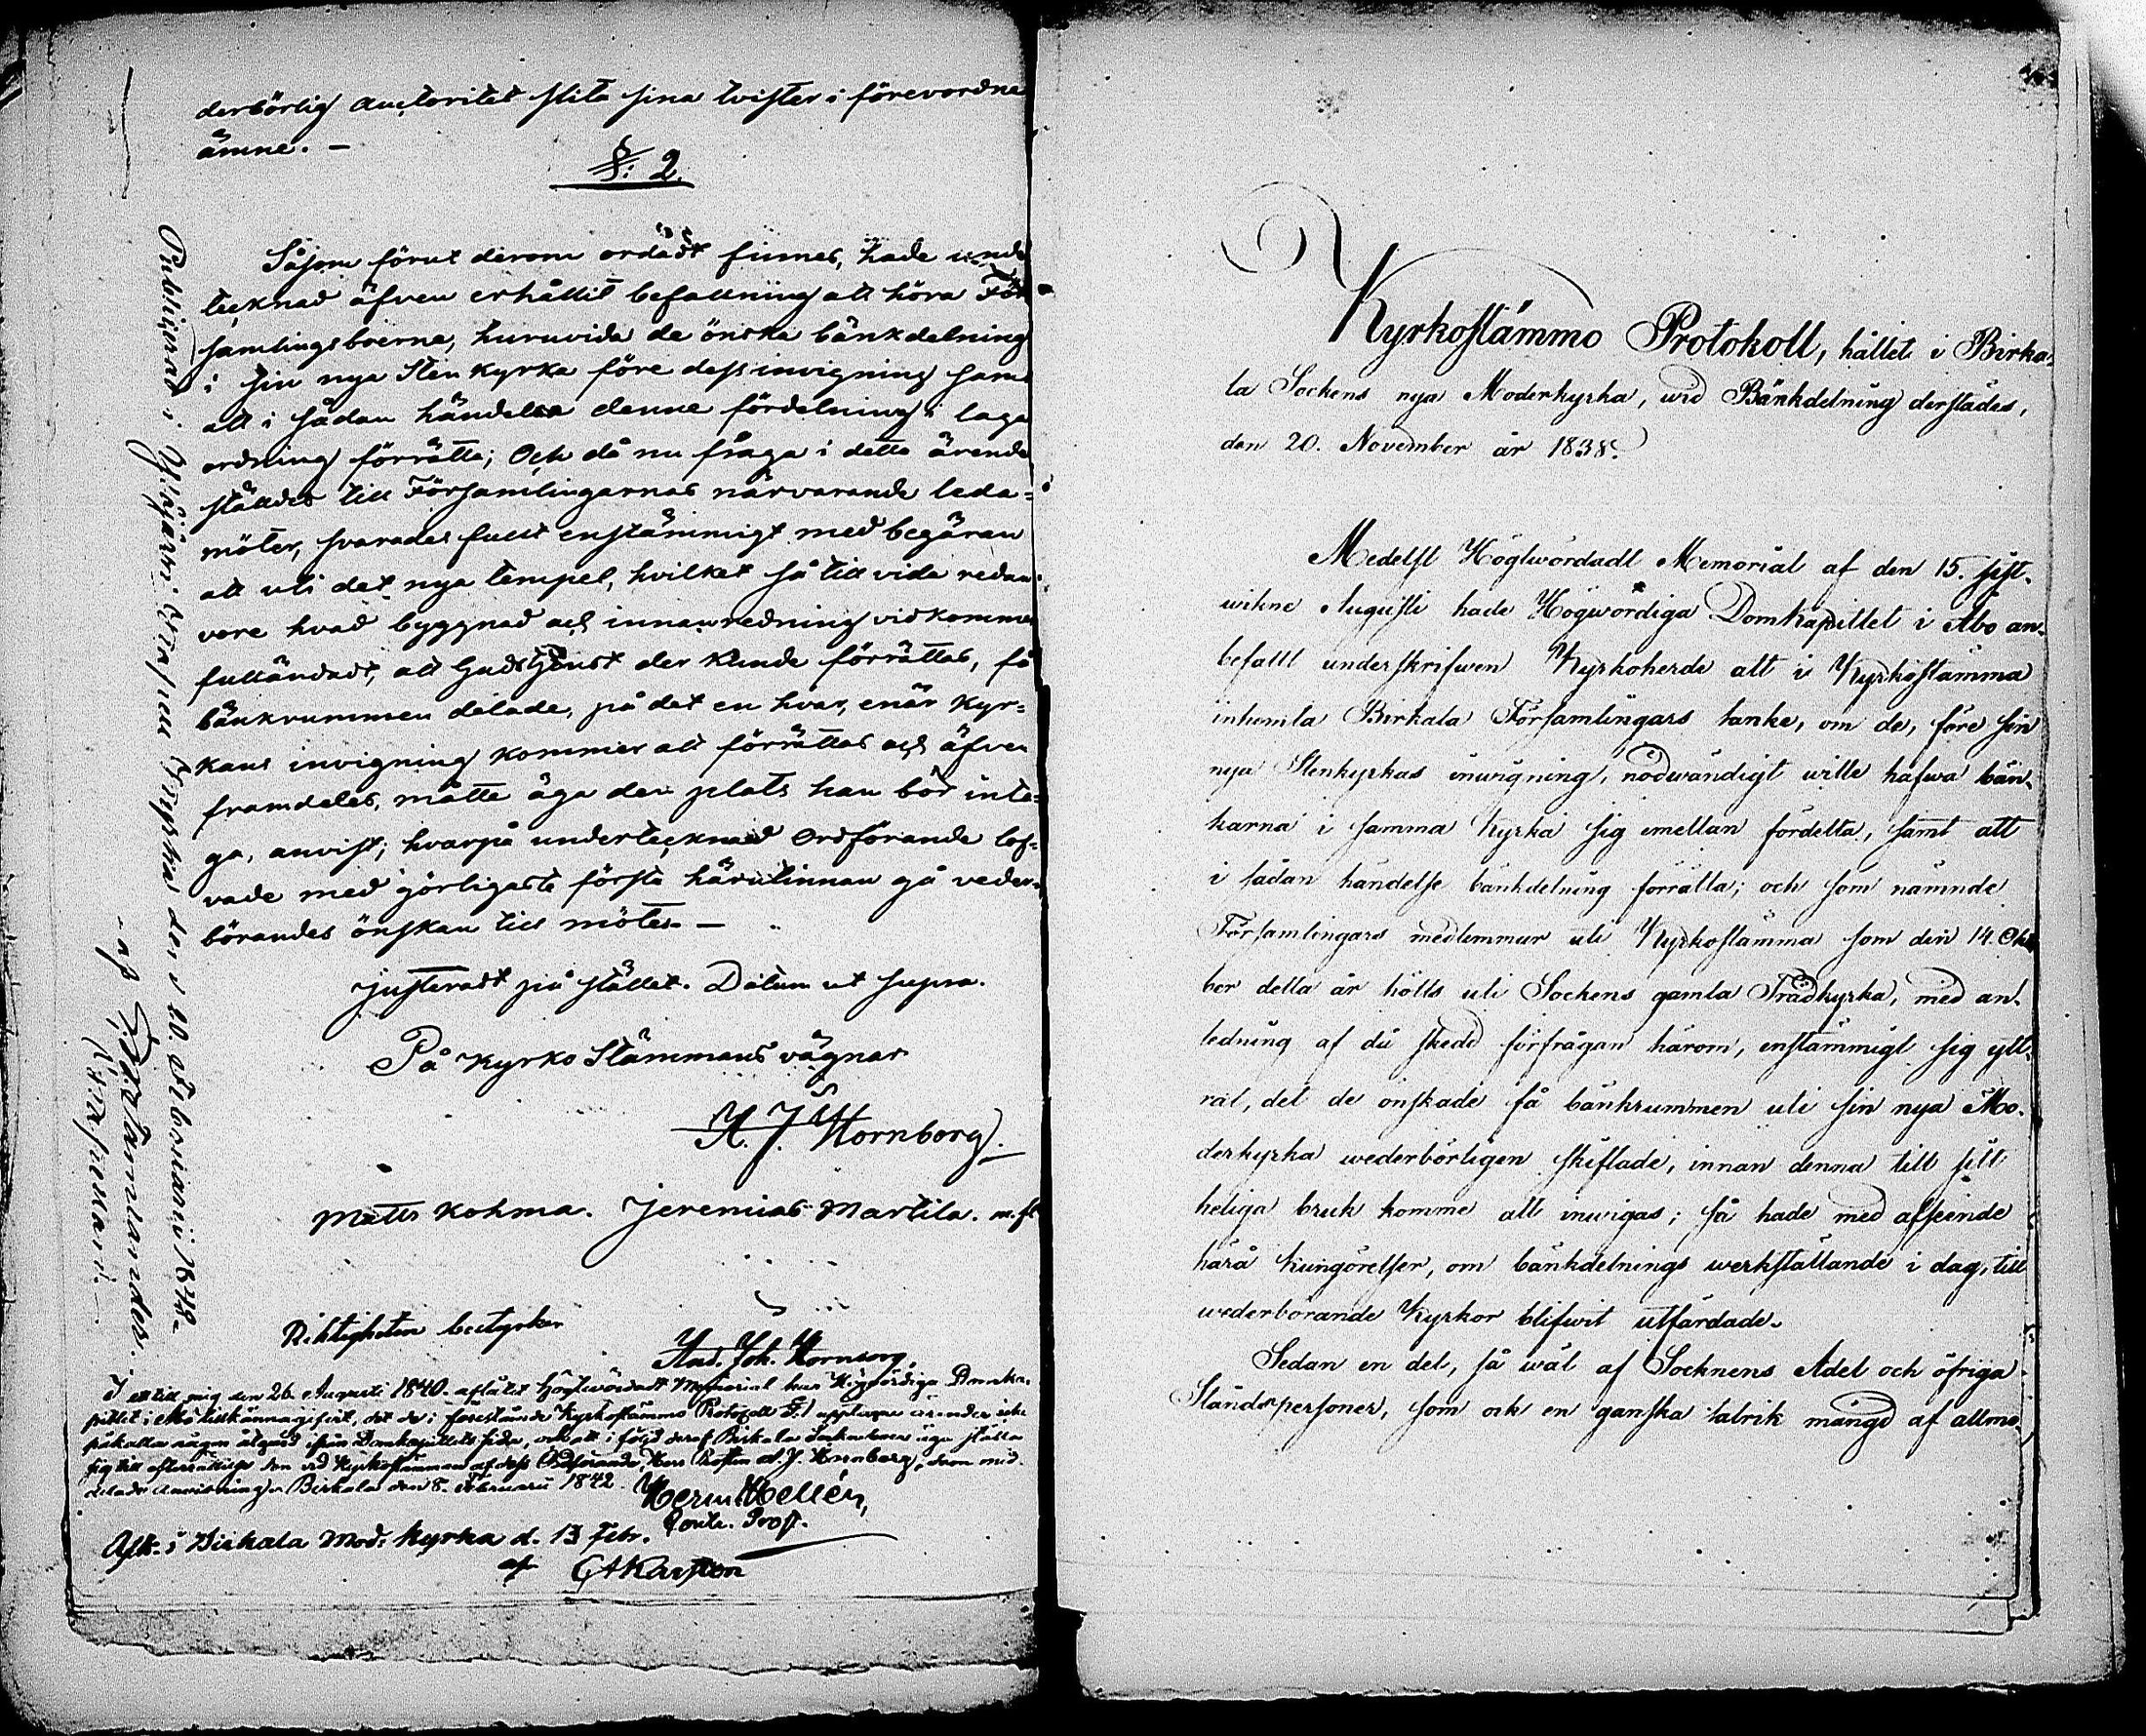 derbörlig auctoritet slita sina tvister i förevordne
ämne. —
§: 2.
Såsom förut derom ordadt finnes, hade unde
tecknad äfven erhållit befallning att höra För
samlingsboerne, huruvida de önska bänkdelning
i sin nya Stenkyrka före dess invigning samt
att i sådan händelse denne fördelning i laga
ordning förrätta; Och då nu fråga i detta ärende
ställdes till Församlingarnas närvarande leda=
möter, svarades fullt enstämmigt med begäran
att uti det nya tempel, hvilket så till vida redan
vore hvad byggnad och innanredning vidkommer
fulländadt, att Gudstjenst der kunde förrättas, få
bänkrummen delade, på det en hvar, enär Kyr=
kans invigning kommer att förrättas och äfven
framdeles, måtte äga den plats han bör inta=
ga, anvist; hvarpå undertecknad Ordförande lof=
vade med görligaste första härutinnan gå veder=
börandes önskan till mötes. —
Justeradt på stället. Datum ut supra.
På Kyrko Stämmans vägnar
A. J. Hornborg.
Matts Kohma. Jeremias Martila. m. fl
Riktigheten bestyrker
And. Joh. Hornborg.
I ett till mig den 26 Augusti 1840 aflåtet Höglwördadt Memorial har Högwördiga Domka-
pitlet i Åbo tillkännagifvit, det de i förestående Kyrkostämmo Protokoll §. 1 upptagne ärenden icke
påkalla någon åtgärd ifrån Domkapitlets sida, och att i följd deraf Birkala Sockneboer äga ställa
sig till efterrättelse den vid Kyrkostämman af dess Ordförande, Herr Prosten A. J. Hornborg, dem med-
delade anvisning. Birkala den 5. Februarii 1842.
Herm Hellén,
Contr. Prost.
Afk. i Birkala Mod: Kyrka d. 13 Febr.
af
Publicerad i Ylöjärvi Kapell Kyrka den 20 Februarii 1842
af
Kapellan.
Kyrkostämmo Protokoll, hållet i Birka-
la Sockens nya Moderkyrka, wid Bänkdelning derstädes,
den 20. November år 1838.
Medelst Höglwördadt Memorial af den 15. sist-
wikne Augusti hade Högwördiga Domkapitlet i Åbo an-
befallt underskrifwen Kyrkoherde att i Kyrkostämma
inhemta Birkala Församlingars tanke, om de, före sin
nya Stenkyrkas inwigning, nödwändigt wille hafwa bän-
karna i samma Kyrka sig emellan fördelta, samt att
i sådan händelse bänkdelning förrätta; och som nämnde
Församlingars medlemmar uti Kyrkostämma som den 14. Okto
ber detta år hölts uti Sockens gamla Trädkyrka, med an-
ledning af då skedd förfrågan härom, enstämmigt sig ytt-
rat, det de önskade få bänkrummen uti sin nya Mo-
derkyrka wederbörligen skiftade, innan denna till sitt
heliga bruk komme att inwigas; så hade med afseende
härå kungörelser, om bänkdelnings werkställande i dag, till
wederbörande Kyrkor blifwit utfärdade.
Sedan en del, så wäl af Socknens Adel och öfriga
Ståndspersoner, som ock en ganska talrik mängd af allmo